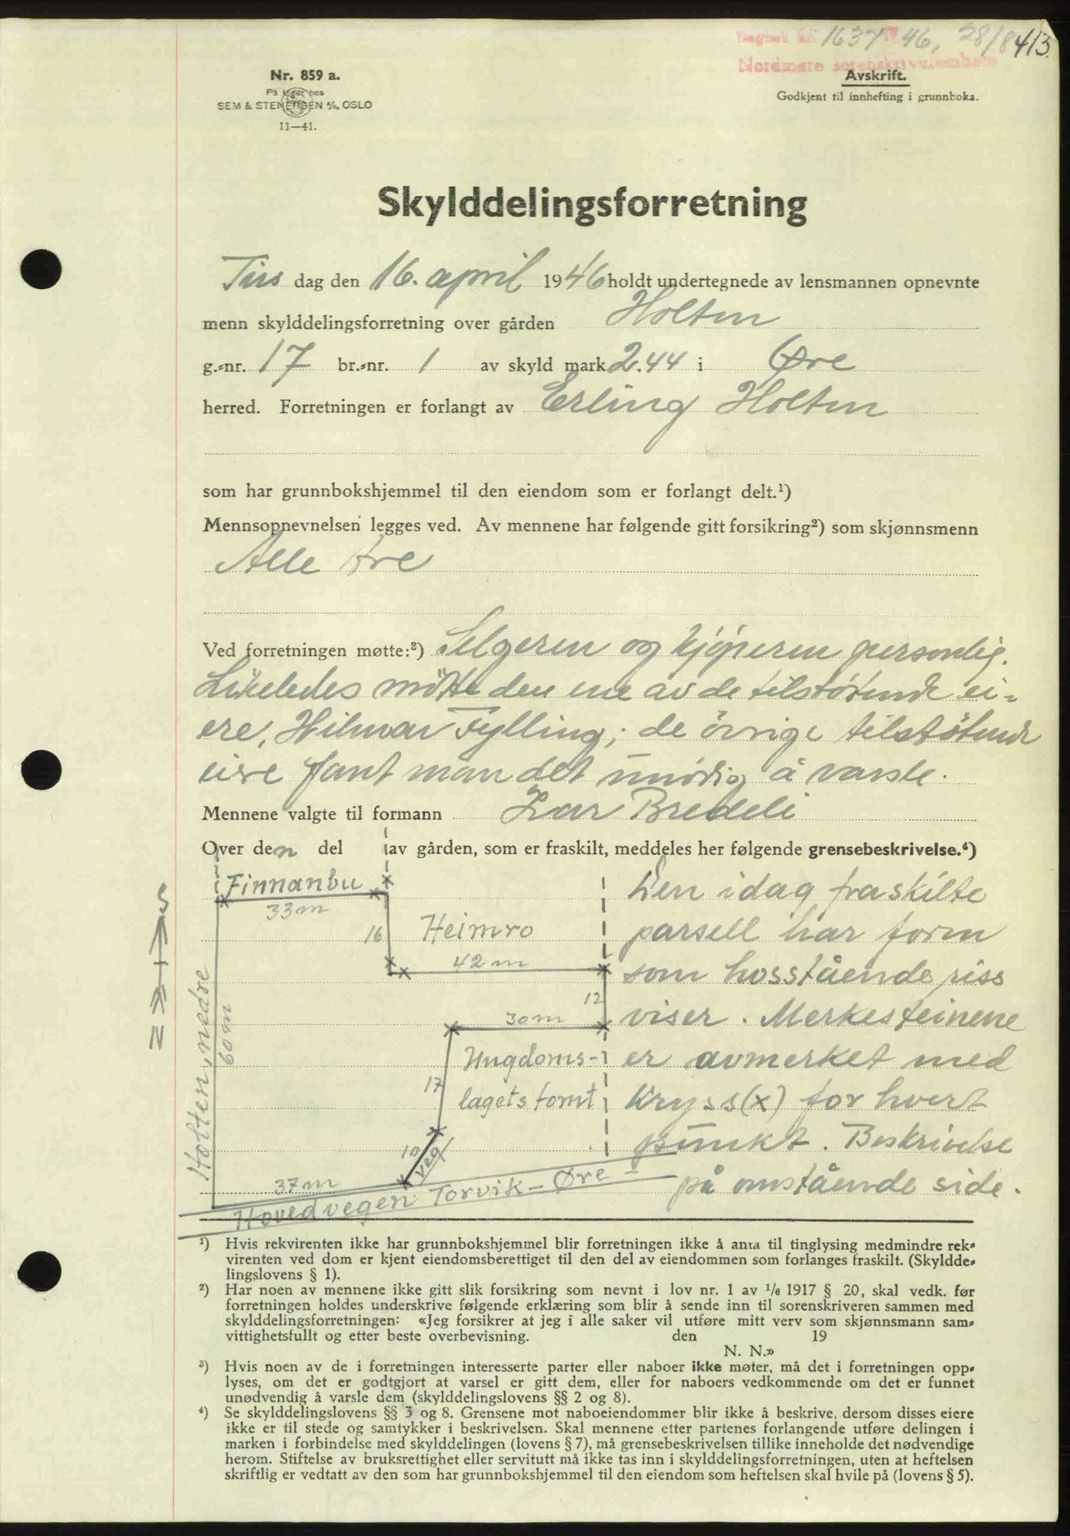 Dagbok nr. 1637 46, 28/8 413
Nordmøre sorenskriverembete
Nr. 859 a.
På lager hos
SEM & STENERSEN A/S, OSLO
11—41.
Avskrift.
Godkjent til innhefting i grunnboka.
Skylddelingsforretning
Tirs dag den 16. april 1946 holdt undertegnede av lensmannen opnevnte
menn skylddelingsforretning over gården Holten
g.-nr. 17 br.-nr. 1 av skyld mark 2.44 i Øre
herred. Forretningen er forlangt av Erling Holten
som har grunnbokshjemmel til den eiendom som er forlangt delt.¹)
Mennsopnevnelsen legges ved. Av mennene har følgende gitt forsikring²) som skjønnsmenn
Alle tre
Ved forretningen møtte:³) Selgeren og kjøperen personlig.
Likeledes møtte den ene av de tilstøtende ei-
ere, Hilmar Fylling; de övrige tilstötende
eire fant man det unödig å varsle.
Mennene valgte til formann Lar Bredeli
Over den del av gården, som er fraskilt, meddeles her følgende grensebeskrivelse.⁴)
Finnanbu
33 m
16
Heimro
42 m
12
30 m
Ungdoms-
lagets tomt
17
10
veg
37 m
Holten nedre
60 m
Hovedvegen Torvik - Øre
N
S
Den idag fraskilte
parsell har form
som hosstående riss
viser. Merkesteinene
er avmerket med
kryss (x) for hvert
punkt. Beskrivelse
på omstående side.
¹) Hvis rekvirenten ikke har grunnbokshjemmel blir forretningen ikke å anta til tinglysing medmindre rek-
virenten ved dom er kjent eiendomsberettiget til den del av eiendommen som forlanges fraskilt. (Skyldde-
lingslovens § 1).
²) Har noen av mennene ikke gitt slik forsikring som nevnt i lov nr. 1 av 1/6 1917 § 20, skal vedk. før
forretningen holdes underskrive følgende erklæring som blir å sende inn til sorenskriveren sammen med
skylddelingsforretningen: «Jeg forsikrer at jeg i alle saker vil utføre mitt verv som skjønnsmann sam-
vittighetsfullt og etter beste overbevisning. den 19
N. N.»
³) Hvis noen av de i forretningen interesserte parter eller naboer ikke møter, må det i forretningen opp-
lyses, om det er godtgjort at varsel er gitt dem, eller for naboers vedkommende om det er funnet
unødvendig å varsle dem (skylddelingslovens §§ 2 og 8).
⁴) Se skylddelingslovens §§ 3 og 8. Grensene mot naboeiendommer blir ikke å beskrive, dersom disses eiere
ikke er til stede og samtykker i beskrivelsen. Skal mennene etter partenes forlangende utføre delingen i
marken i forbindelse med skylddelingen (lovens § 7), må grensebeskrivelsen tillike inneholde det nødvendige
herom. Stiftelse av bruksrettighet eller servitutt må ikke tas inn i skylddelingsforretningen, uten at heftelsen
skriftlig er vedtatt av den som har grunnbokshjemmel til den eiendom som heftelsen skal hvile på (lovens § 5).